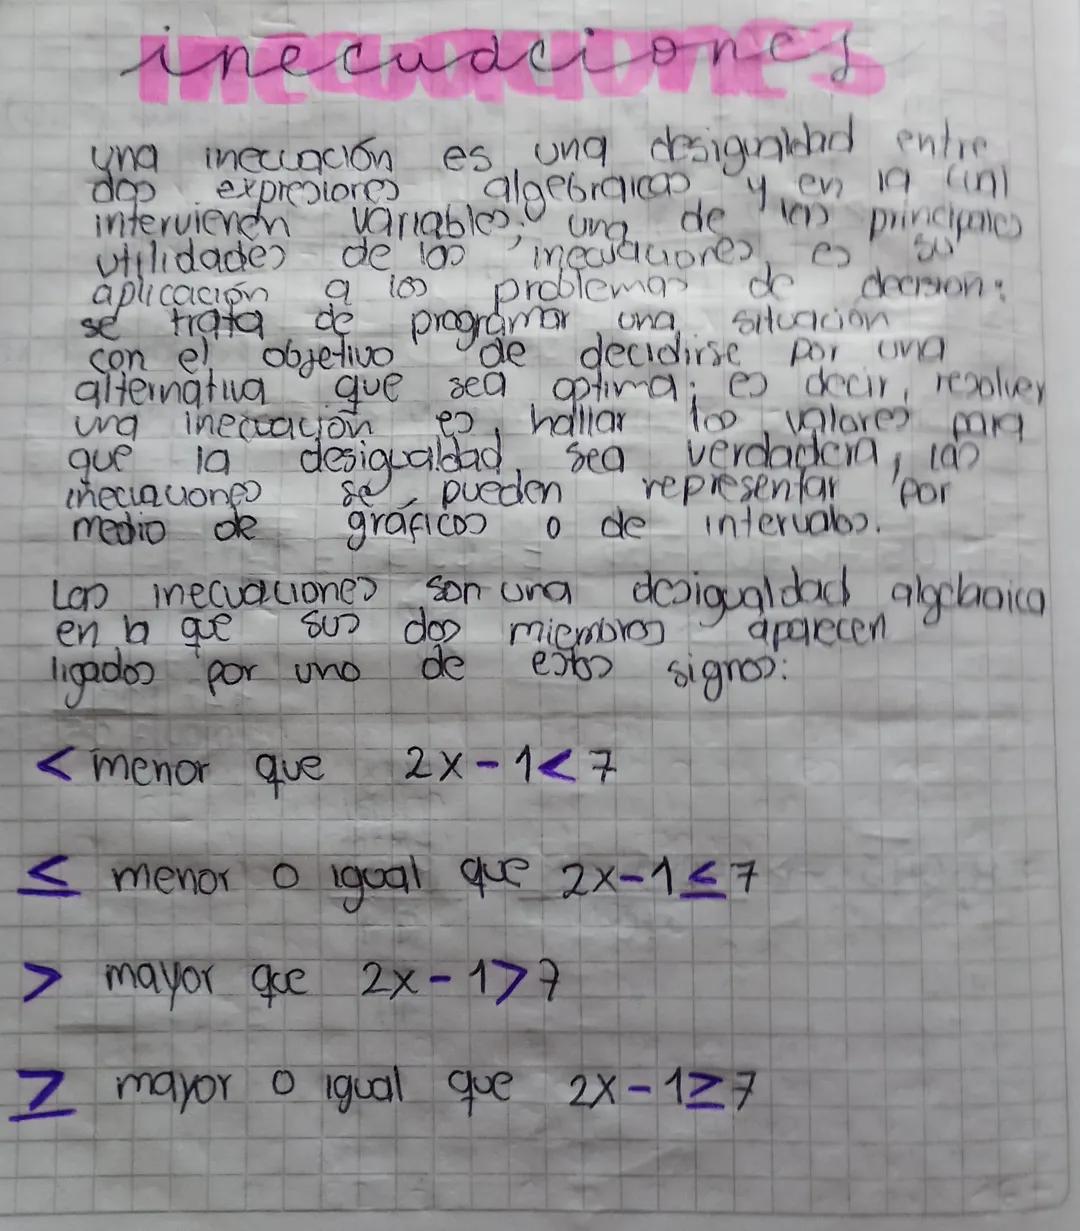 inecuaciones
una inecuación es una desigualdad entre
dos expresiones algebraicas y en la cual
intervienen variables; una de las principales
utilidades de las inecuaciones es su
aplicación a los problemas de decision:
se trata de programar una situación
con el objetivo de decidirse por una
alternativa que sea optima; es decir, resolver
una inecuación es hallar los valores para
que la desigualdad sea verdadera, las
inecuaciones se pueden representar por
medio de gráficos o de intervalos.
Las inecuaciones son una desigualdad algebraica
en la que sus dos miembros aparecen
ligados por uno de estos signos:
< menor que 2x - 1 < 7
≤ menor o igual que 2x - 1 ≤ 7
> mayor que 2x - 1 > 7
≥ mayor o igual que 2x - 1 ≥ 7